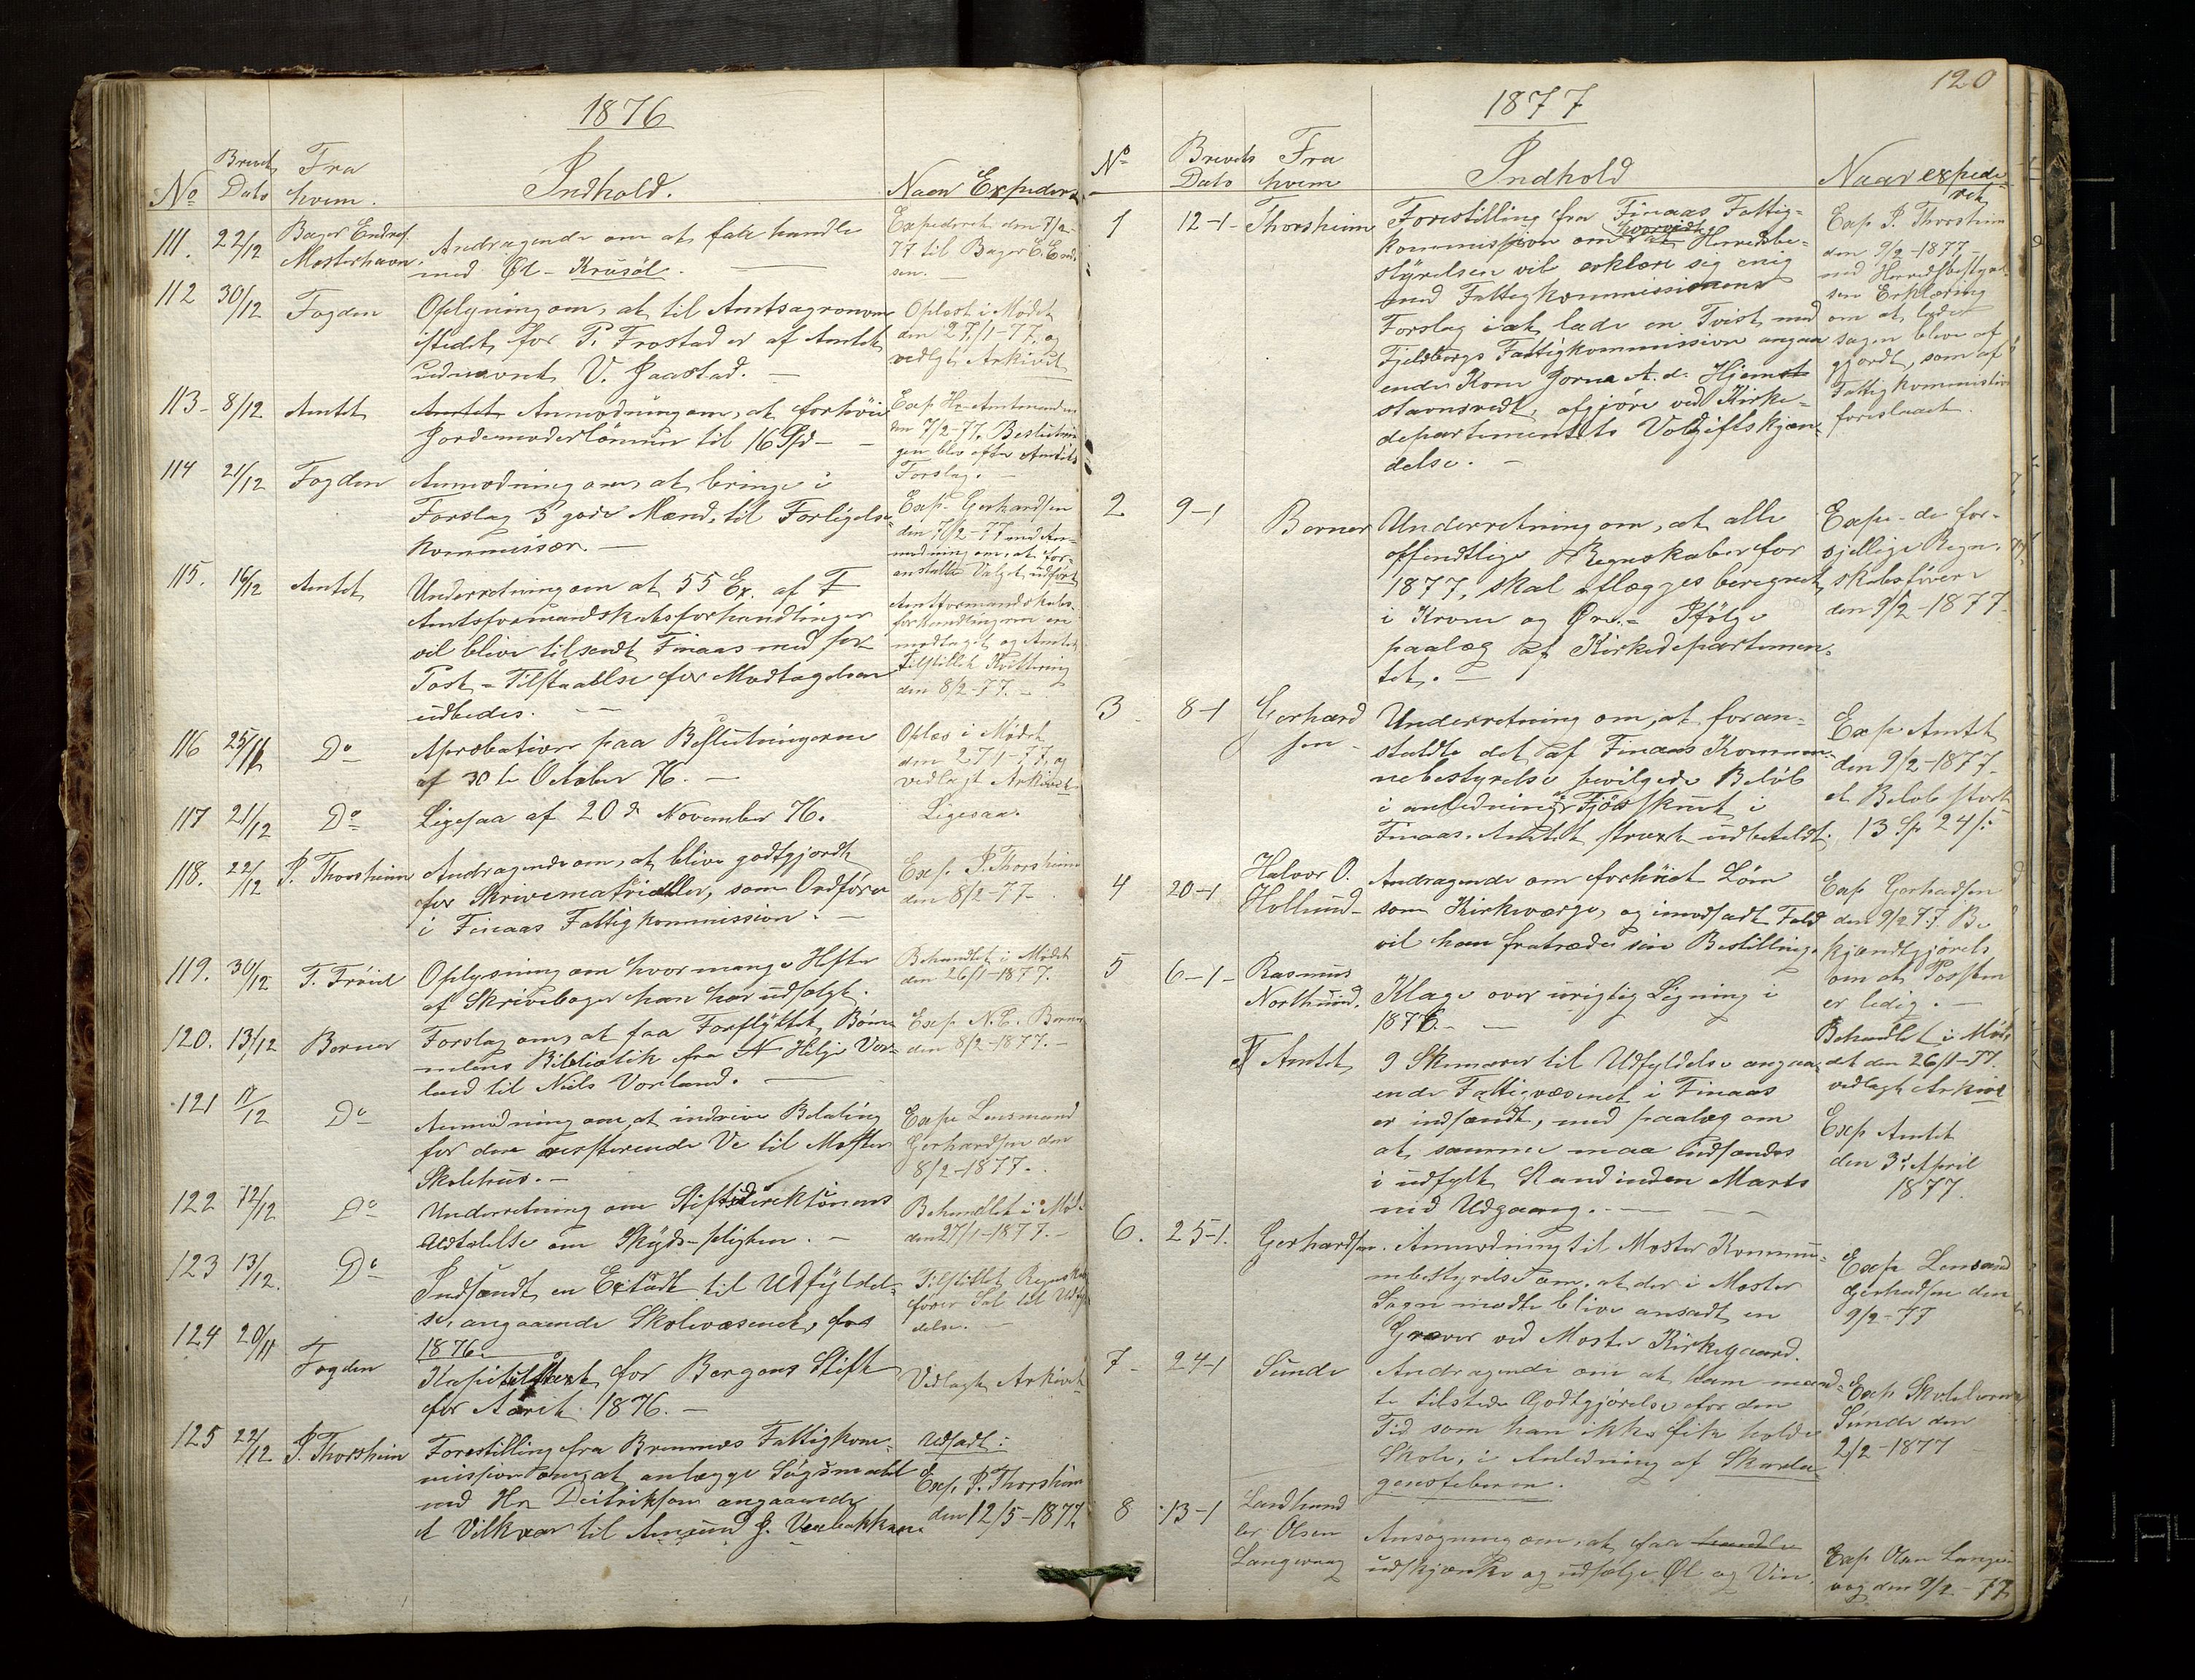 1876
No
Brevets
Dato
Fra
hvem.
Indhold.
Naar Expederet
111.
22/12
Bager Endres.
Mosterhavn.
Andragende om at faae handle
med Øl - Krusöl.
Expederet den 7/2-
77 til Bager E. End-
sen.
112
30/12
Fogden
Oplysning om, at til Amtsagronom
istedet for P. Frostad er af Amtet
udnævnt V. Jaastad. -
Oplæst i Mödet
den 27/1-77, og
vedlagt Arkivet
113-
8/12
Amtet
Amtets Anmodning om, at forhöie
Jordemoderlönnen til 16 Spd -
Exp Hr Amtmanden
den 7/2-77. Beslutnin
gen blev efter Amtets
Forslag. -
114
21/12
Fogden
Anmodning om, at bringe i
Forslag 3 gode Mænd, til Forligelses
kommissær. -
Exp. Gerhardsen
den 7/2-77 med An-
modning om, at for-
anstalte Valget udfört
115.
16/12
Amtet
Underretning om at 55 Ex. af F
Amtsformandskabsforhandlinger
vil blive tilsendt Finaas med per
Post - Tilstaaelse for Modtagelsen
udbedes. -
Amtformandskabs-
forhandlingerne ere
modtaget og Amtet
Tilstillet Kvittering
den 8/2-77. -
116
25/11
Do
Aprobation paa Beslutningerne
af 30te October 76. -
Oplæs i Mødet
den 27/1-77, og
vedlagt Arkivet
117
21/12
Do
Ligesaa af 20de November 76.
Ligesaa.
118.
22/12
P. Thorsheim
Andragende om, at blive godtgjordt
for Skrivematrialler, som Ordförer
i Finaas Fattigkommission. -
Exp. P. Thorsheim
den 8/2-77-
119.
30/12
T. Tröiel
Oplysning om hvor mange Hefter
af Skrivebøger han har udsolgt.
Behandlet i Mödet
den 26/1-1877.
120.
13/12
Berner
Forslag om, at faa Forflyttet Böm-
melens Bibliotik fra N Helje Vor-
land til Niels Vorland. -
Exp N. C. Berner
den 8/2-1877. -
121
11/12
Do
Anmodning om, at indrive Betaling
for den resterende Ve til Moster
Skolehus. -
Expe Lensmand
Gerhardsen den
8/2-1877. -
122
12/12
Do
Underretning om Stiftsdirektionens
Udtalelse om Skyds-pligten. -
Behandlet i Mödet
den 27/1-1877. -
123
13/12.
Do
Indsendt en Extradt til Udfyldel-
se, angaaende Skolevæsenet, for
1876.
Tilstillet Regnskabs
förer Sæl til Udfyl
delse. -
124
20/11
Fogden
Kapitelstaxt for Bergens Stift
for Aaret 1876. -
Vedlagt Arkivet
125
22/12
P. Thorsheim
Forestilling fra Bremnes Fattigkom-
mission om, at anlægge Sögsmaal
med Hr Deitrikson angaaende
et Vilkaar til Amund J. Vernbakken.
Udsadt:
Exp. P. Thorsheim
den 12/5-1877.
120
1877
No
Brevets
Dato
Fra
hvem
Indhold
Naar expede-
ret
1
12-1
Thorsheim
Forestilling fra Finaas Fattig-
kommission om hvorvidt Herredsbe-
styrelsen vil erklære sig enig
med Fattigkommissionens
Forslag i at lade en Tvist med
Fjeldbergs Fattigkommission angaa
ende Kone Jorna A. d. Hjemst
stavnsredt, afgjøre ved Kirke-
departementets Voldgiftskjen-
delse. -
Exp P. Thorsheim
den 9/2-1877
med Herredsbestyrel
sen Erklæring
om at lade
sagen blive af
gjordt, som af
Fattigkommission
foreslaaet.
2
9-1
Berner
Underretning om, at alle
offentlige Regnskaber for
1877, skal aflægges beregnet
i Krone og Øre. - Ifölge
paalæg af Kirkedepartemen-
tet. -
Expe - de for-
sjellige Regn-
skabsförere
den 9/2-1877-
3
8-1
Gerhard
sen -
Underretning om, at foran-
staldte det af Finaas Kommu-
nebestyrelse bevilgede Belöb
i anledning Fjösskuret i
Finaas. Amtet straxt udbetaldt.
Exp Amtet
den 9/2-1877-
et Belöb stort
13 Sp 24 s:
4
20-1
Halvor O.
Hollund-
Andragende om forhöiet Lön
som Kirkværge, og imodsadt Fald
vil han fratræde sin Bestilling.
Exp Gerhadsen
den 9/2 77. Be
kjændtgjörels
om at Posten
er ledig. -
5
6-1-
Rasmus
Nordhuud.
Klage over urigtig Ligning i
1876. - -
Behandlet i Mö-
det den 26/1-77.
vedlagt Arkivet
Amtet
9 Skemaer til Udfyldelse angaa
ende Fattigvæsenet i Finaas
er indsendt, med paalæg om
at samme maa indsendes
i udfylt Stand inden Marts
nid Udgaang. - -
Exp Amtet
den 3d April
1877.
6.
25-1.
Gerhardsen.
Anmodning til Moster Kommu-
nebestyrelse om, at der i Moster
Sogn maatte blive ansadt en
Graver ved Moster Kirkegaard.
Exp Lensmand
Gerhadsen den
9/2-77
7-
24-1
Sunde
Andragende om at ham maat-
te tilstede Godtgjörelse for den
Tid som han ikke fik holde
Skole, i Anledning af Skarla-
gensfeberen.
Exp Skolelærer
Sunde den
2/2-1877
8
13-1
Landhand
ler Olsen
Langevaag
Ansögning om, at faae handle
udskjænke og udsælge Øl og Vin.
Exp Olsen Lange
vaag den 9/2-77